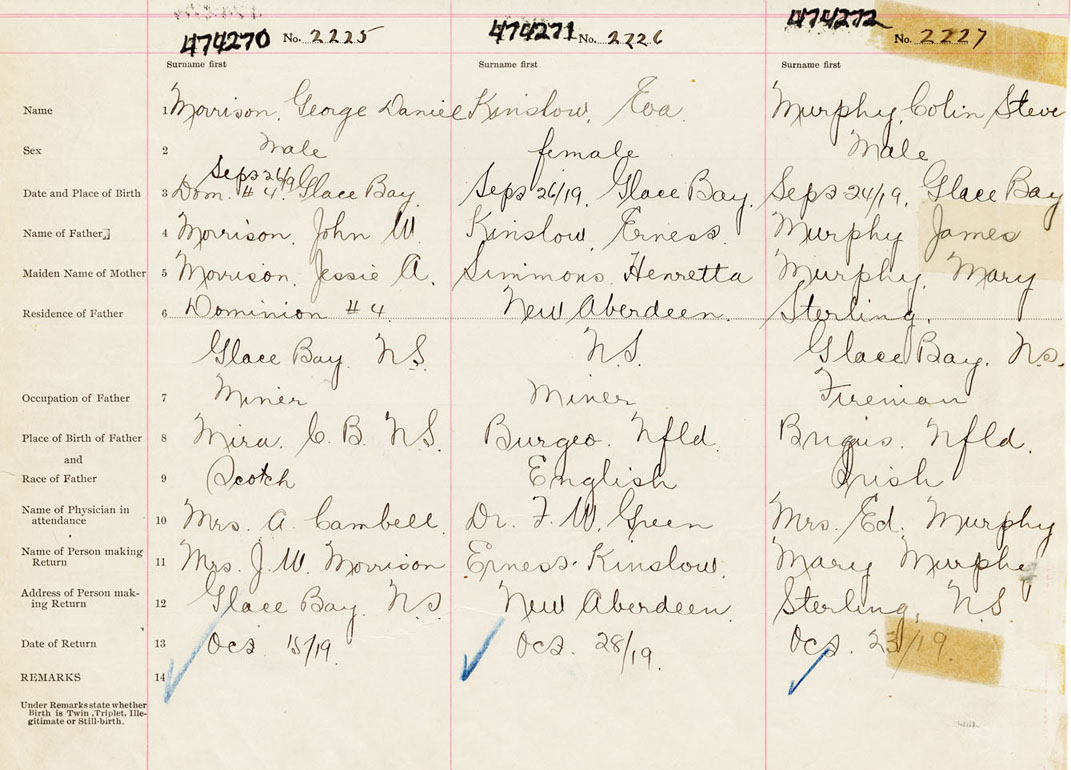 474270 No. 2225 474271 No. 2226 474272 No. 2227
Surname first Surname first Surname first
Name 1 Morrison, George Daniel Kinslow, Eva Murphy, Colin Steve
Sex 2 Male female Male
Sept 26/19
Date and Place of Birth 3 Dom. # 4. Glace Bay. Sept 26/19, Glace Bay. Sept 24/19, Glace Bay
Name of Father 4 Morrison, John W. Kinslow, Ernest. Murphy James
Maiden Name of Mother 5 Morrison, Jessie A. Simmons, Henretta Murphy, Mary
Residence of Father 6 Dominion # 4 New Aberdeen. Sterling.
Glace Bay NS. NS. Glace Bay. Ns.
Occupation of Father 7 Miner Miner Fireman
Place of Birth of Father 8 Mira. C. B. NS. Burgeo. Nfld. Brigus. Nfld.
and
Race of Father 9 Scotch English Irish
Name of Physician in
attendance 10 Mrs. A. Cambell. Dr. F. W. Green Mrs. Ed. Murphy
Name of Person making
Return 11 Mrs. J. W. Morrison Ernest Kinslow. Mary Murphy
Address of Person mak-
ing Return 12 Glace Bay. NS New Aberdeen. Sterling, NS
Date of Return 13 Oct 15/19. Oct. 28/19. Oct. 23/19.
REMARKS 14
Under Remarks state whether
Birth is Twin, Triplet, Ille-
gitimate or Still-birth.